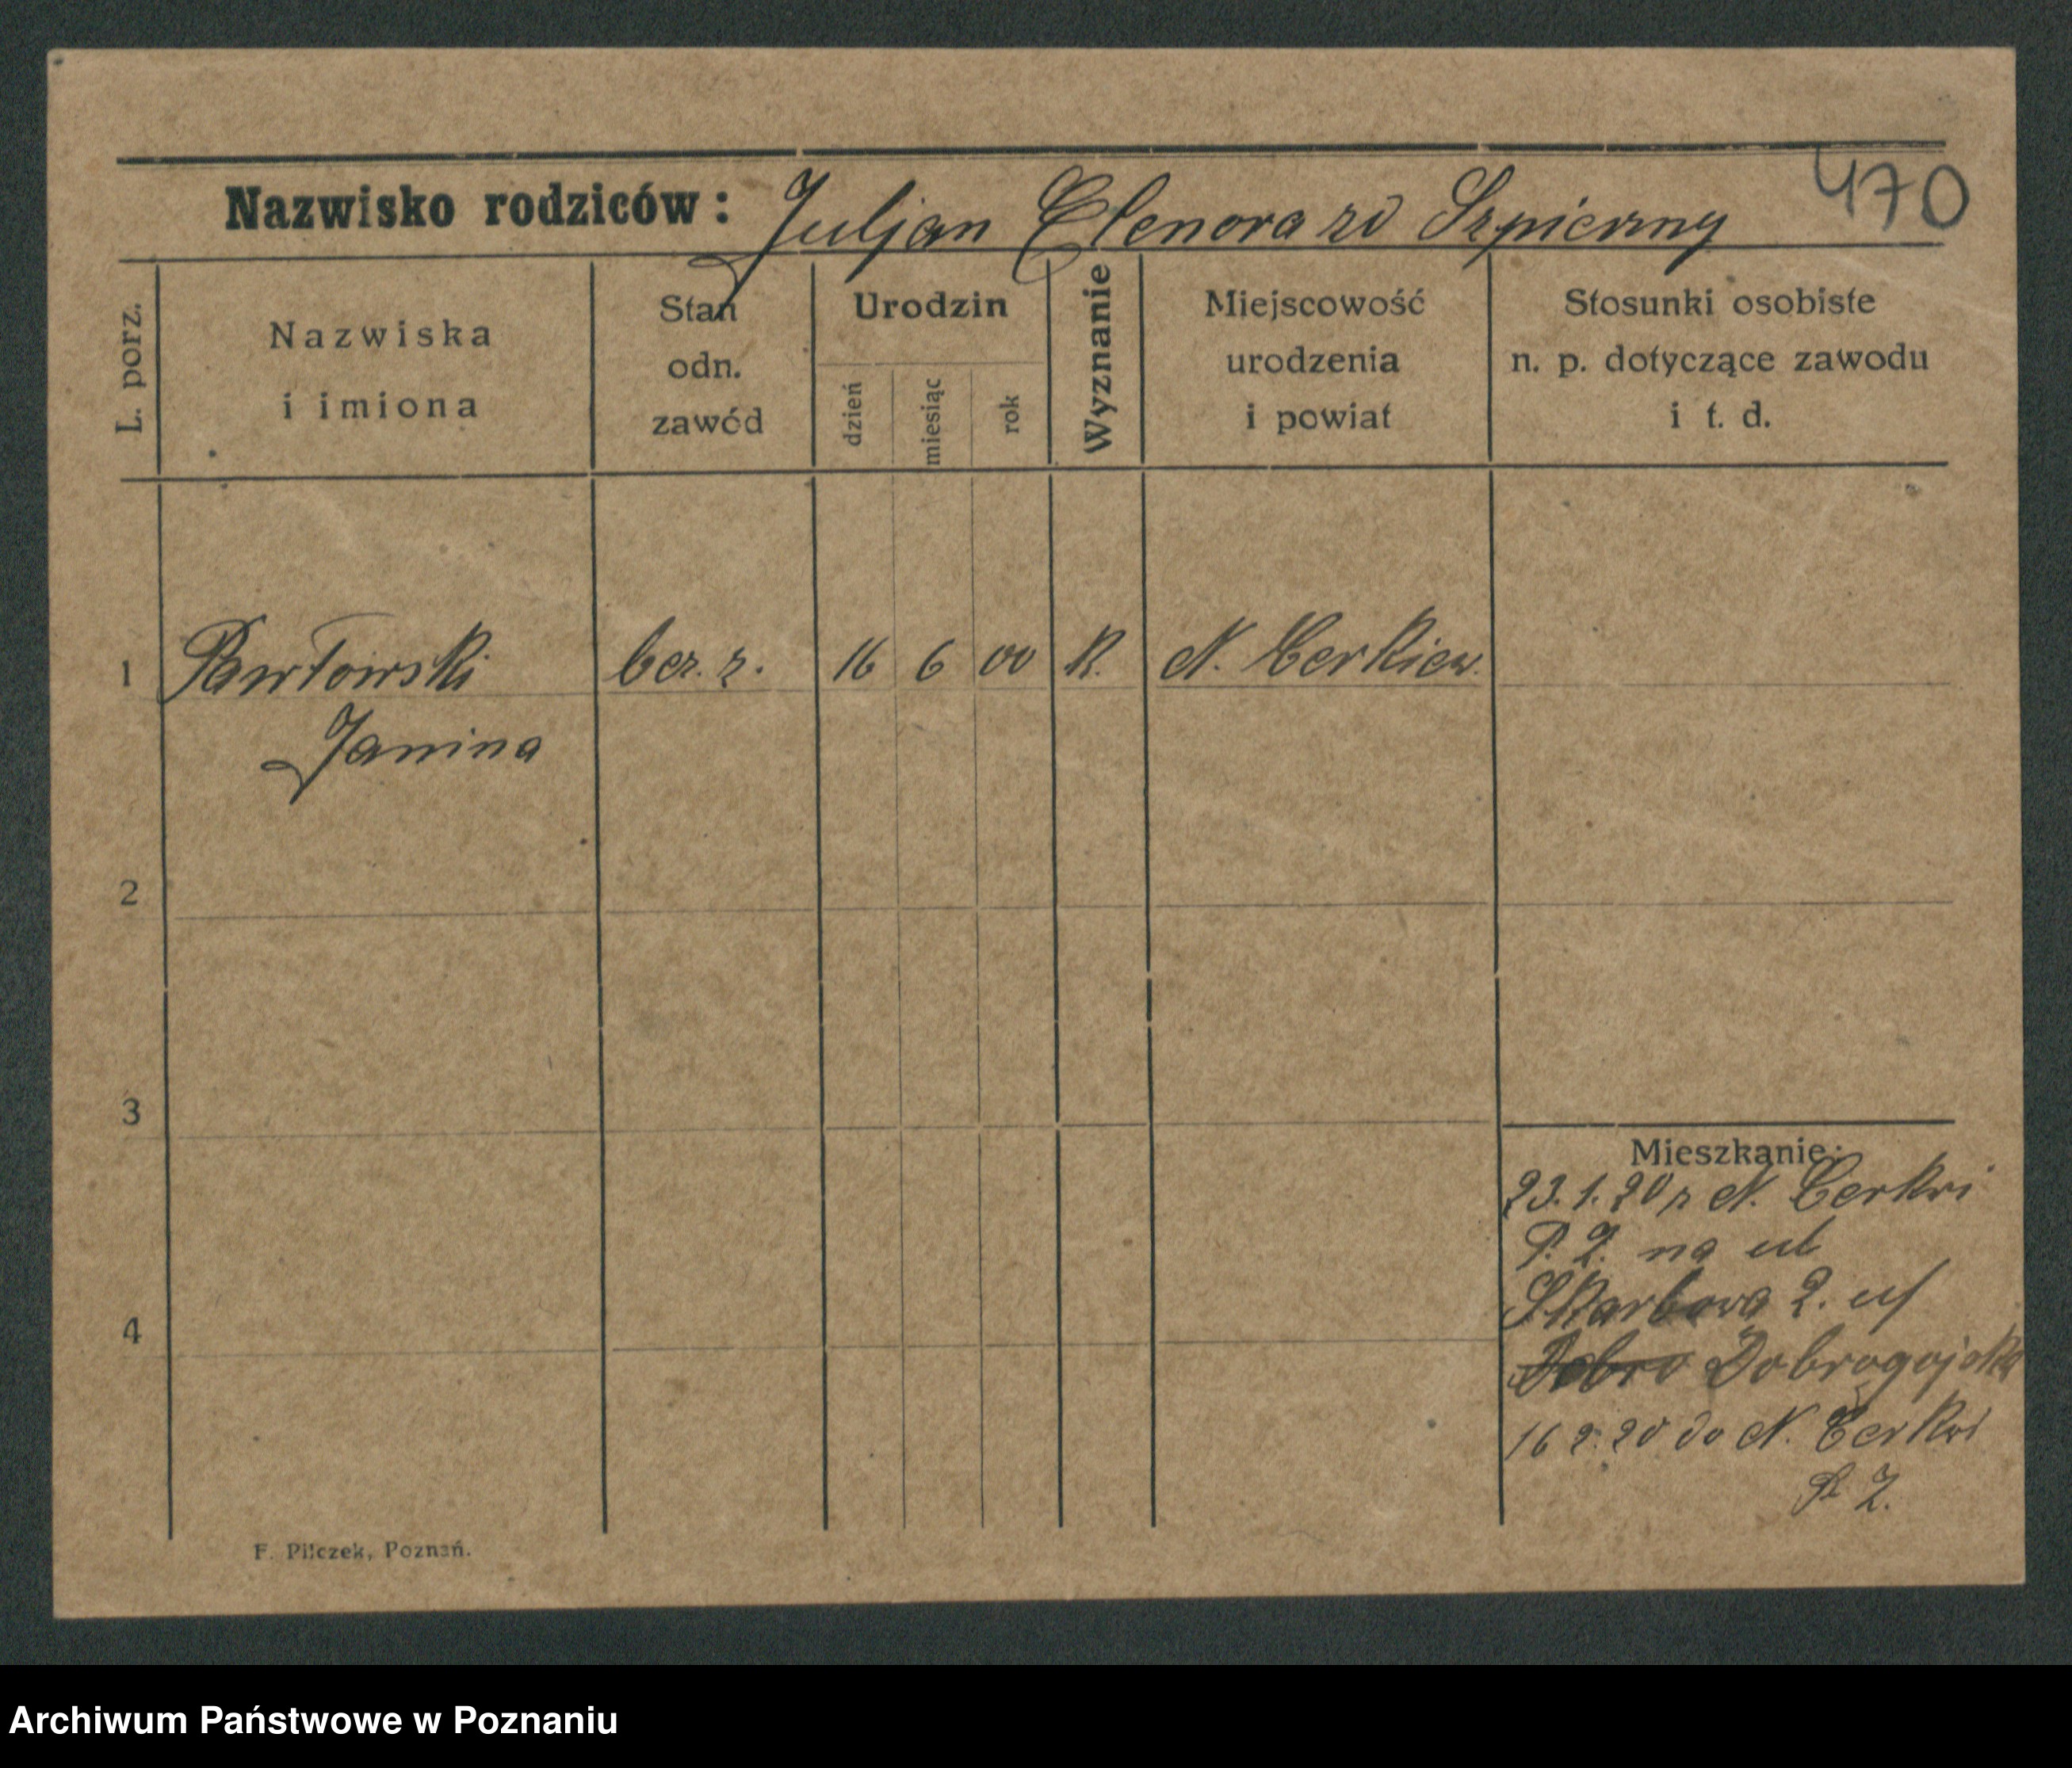 470
Nazwisko rodziców: Juljan Elenora zd Szpierzny
L. porz.
Nazwiska
i imiona
Stan
odn.
zawód
Urodzin
dzień
miesiąc
rok
Wyznanie
Miejscowość
urodzenia
i powiat
Stosunki osobiste
n. p. dotyczące zawodu
i t. d.
1 Pawłowski bez. z. 16 6 00 K. N. Cerkiew.
Janina
2
3
4
Mieszkanie:
23.1.20 z N. Cerkwi
P. Z. na ul
Skarbowa 2. u/
Dobro Dobrogojska
16 2. 20 do N. Cerkwi
P. Z.
F. Pilczek, Poznań.
Archiwum Państwowe w Poznaniu